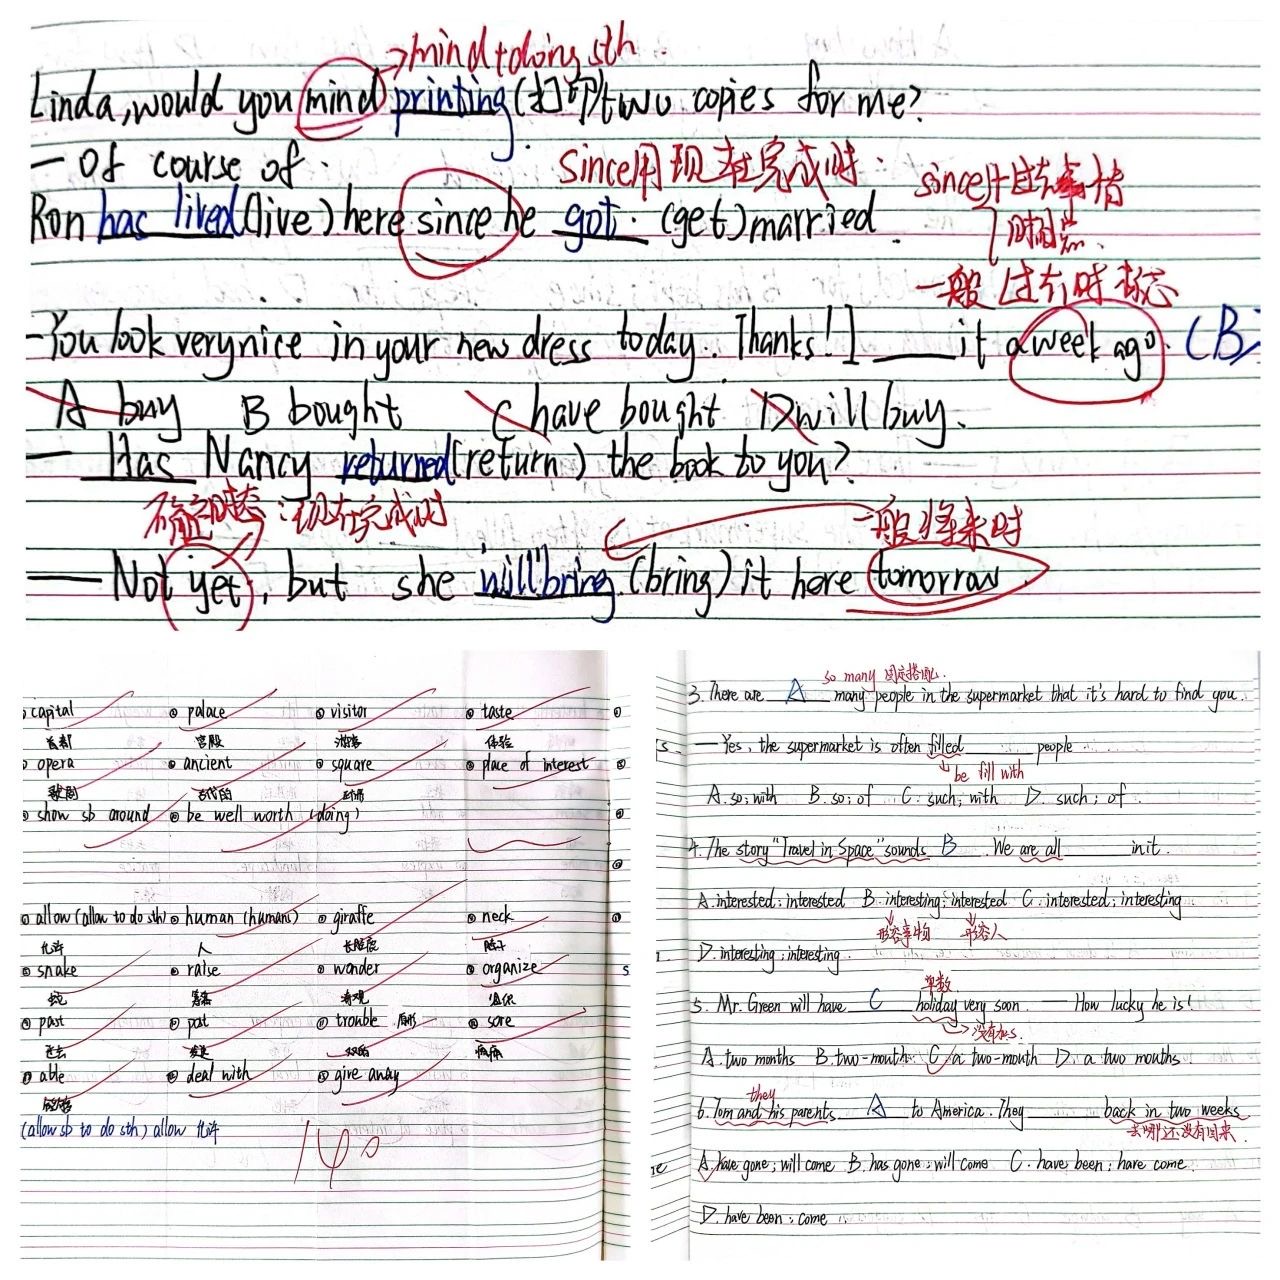 →mind+doing sth.
Linda, would you mind printing (打印) two copies for me?
— Of course of.
since用现在完成时.
since+过去事情
时间点.
Ron has lived (live) here since he got. (get) married.
一般过去时标志
-You look very nice in your new dress today. Thanks! I ____ it a week ago. (B)
A buy B bought C have bought D will buy.
— Has Nancy returned (return) the book to you?
现在完成时
一般将来时
— Not yet, but she will bring (bring) it here tomorrow.
capital palace visitor taste
首都 宫殿 游客 体验
opera ancient square place of interest
歌剧 古代的
show sb around be well worth (doing)
allow (allow to do sth) human (humans) giraffe neck
允许 人 长颈鹿 脖子
snake raise wonder organize
蛇 奇观 组织
past pat trouble sore
过去 疼痛
able deal with give away
(allow sb to do sth) allow 允许
so many 固定搭配.
3. There are A many people in the supermarket that it's hard to find you.
— Yes, the supermarket is often filled ____ people
be fill with
A. so; with B. so; of C. such; with D. such; of
4. The story "Travel in Space" sounds B. We are all ____ in it.
A. interested; interested B. interesting; interested C. interested; interesting
形容事物 形容人
D. interesting; interesting.
单数
5. Mr. Green will have C holiday very soon. How lucky he is!
→没有加s.
A. two months B. two-month C. a two-month D. a two months
they
6. Tom and his parents A to America. They ____ back in two weeks
去哪还没有回来.
A. have gone; will come B. has gone; will come C. have been; have come.
D. have been; come